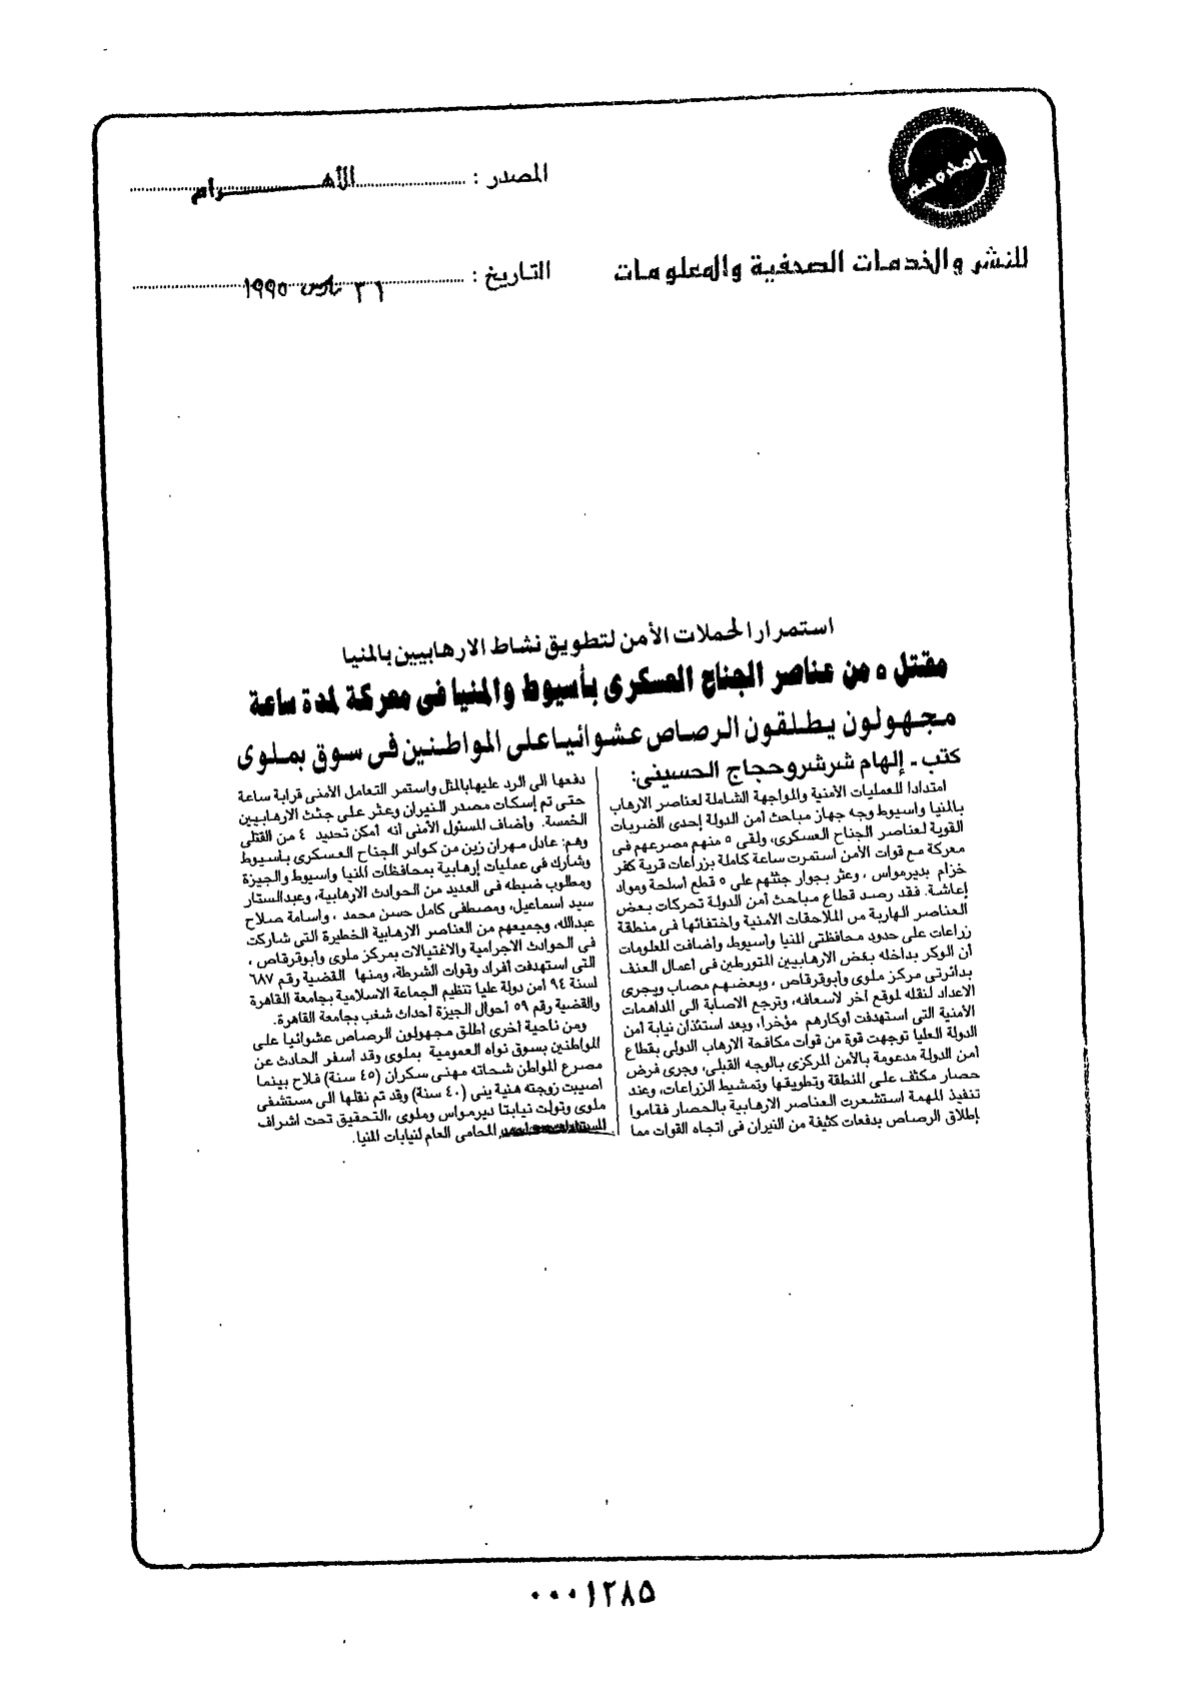 المدوسه
المصدر : الأهرام
للنشر والخدمات الصحفية والمعلومات
التاريخ : ٣١ مارس ١٩٩٥
استمرارا لحملات الأمن لتطويق نشاط الارهابيين بالمنيا
مقتل ٥ من عناصر الجناح العسكرى بأسيوط والمنيا فى معركة لمدة ساعة
مجهولون يطلقون الرصاص عشوائيا على المواطنين فى سوق بملوى
كتب - إلهام شرشر وحجاج الحسينى:
امتدادا للعمليات الأمنية والمواجهة الشاملة لعناصر الارهاب
بالمنيا واسيوط وجه جهاز مباحث أمن الدولة إحدى الضربات
القوية لعناصر الجناح العسكرى، ولقى ٥ منهم مصرعهم فى
معركة مع قوات الأمن استمرت ساعة كاملة بزراعات قرية كفر
خزام بديرمواس ، وعثر بجوار جثثهم على ٥ قطع أسلحة ومواد
إعاشة. فقد رصد قطاع مباحث أمن الدولة تحركات بعض
العناصر الهاربة من الملاحقات الأمنية واختفائها فى منطقة
زراعات على حدود محافظتى المنيا وأسيوط، وأضافت المعلومات
أن الوكر بداخله بعض الارهابيين المتورطين فى اعمال العنف
بدائرتى مركز ملوى وأبوقرقاص ، وبعضهم مصاب ويجرى
الاعداد لنقله لموقع آخر لاسعافه، وترجع الاصابة الى المداهمات
الأمنية التى استهدفت أوكارهم مؤخرا، وبعد استئذان نيابة أمن
الدولة العليا توجهت قوة من قوات مكافحة الارهاب الدولى بقطاع
أمن الدولة مدعومة بالأمن المركزى بالوجه القبلى، وجرى فرض
حصار مكثف على المنطقة وتطويقها وتمشيط الزراعات، وعند
تنفيذ المهمة استشعرت العناصر الارهابية بالحصار فقاموا
إطلاق الرصاص بدفعات كثيفة من النيران فى اتجاه القوات مما
دفعها الى الرد عليها بالمثل واستمر التعامل الأمنى قرابة ساعة
حتى تم إسكات مصدر النيران وعثر على جثث الارهابيين
الخمسة. وأضاف المسئول الأمنى أنه أمكن تحديد ٤ من القتلى
وهم: عادل مهران زين من كوادر الجناح العسكرى بأسيوط
وشارك فى عمليات إرهابية بمحافظات المنيا واسيوط والجيزة
ومطلوب ضبطه فى العديد من الحوادث الارهابية، وعبدالستار
سيد اسماعيل، ومصطفى كامل حسن محمد ، واسامة صلاح
عبدالله، وجميعهم من العناصر الارهابية الخطيرة التى شاركت
فى الحوادث الاجرامية والاغتيالات بمركز ملوى وأبوقرقاص ،
التى استهدفت أفراد وقوات الشرطة، ومنها القضية رقم ٦٨٧
لسنة ٩٤ أمن دولة عليا تنظيم الجماعة الاسلامية بجامعة القاهرة
والقضية رقم ٥٩ أحوال الجيزة أحداث شغب بجامعة القاهرة.
ومن ناحية أخرى أطلق مجهولون الرصاص عشوائيا على
المواطنين بسوق نواه العمومية بملوى وقد أسفر الحادث عن
مصرع المواطن شحاته مهنى سكران (٤٥ سنة) فلاح بينما
أصيبت زوجته هنية ينى (٤٠ سنة) وقد تم نقلها الى مستشفى
ملوى وتولت نيابتا ديرمواس وملوى ،التحقيق تحت اشراف
المحامى العام لنيابات المنيا.
٠٠٠١٢٨٥